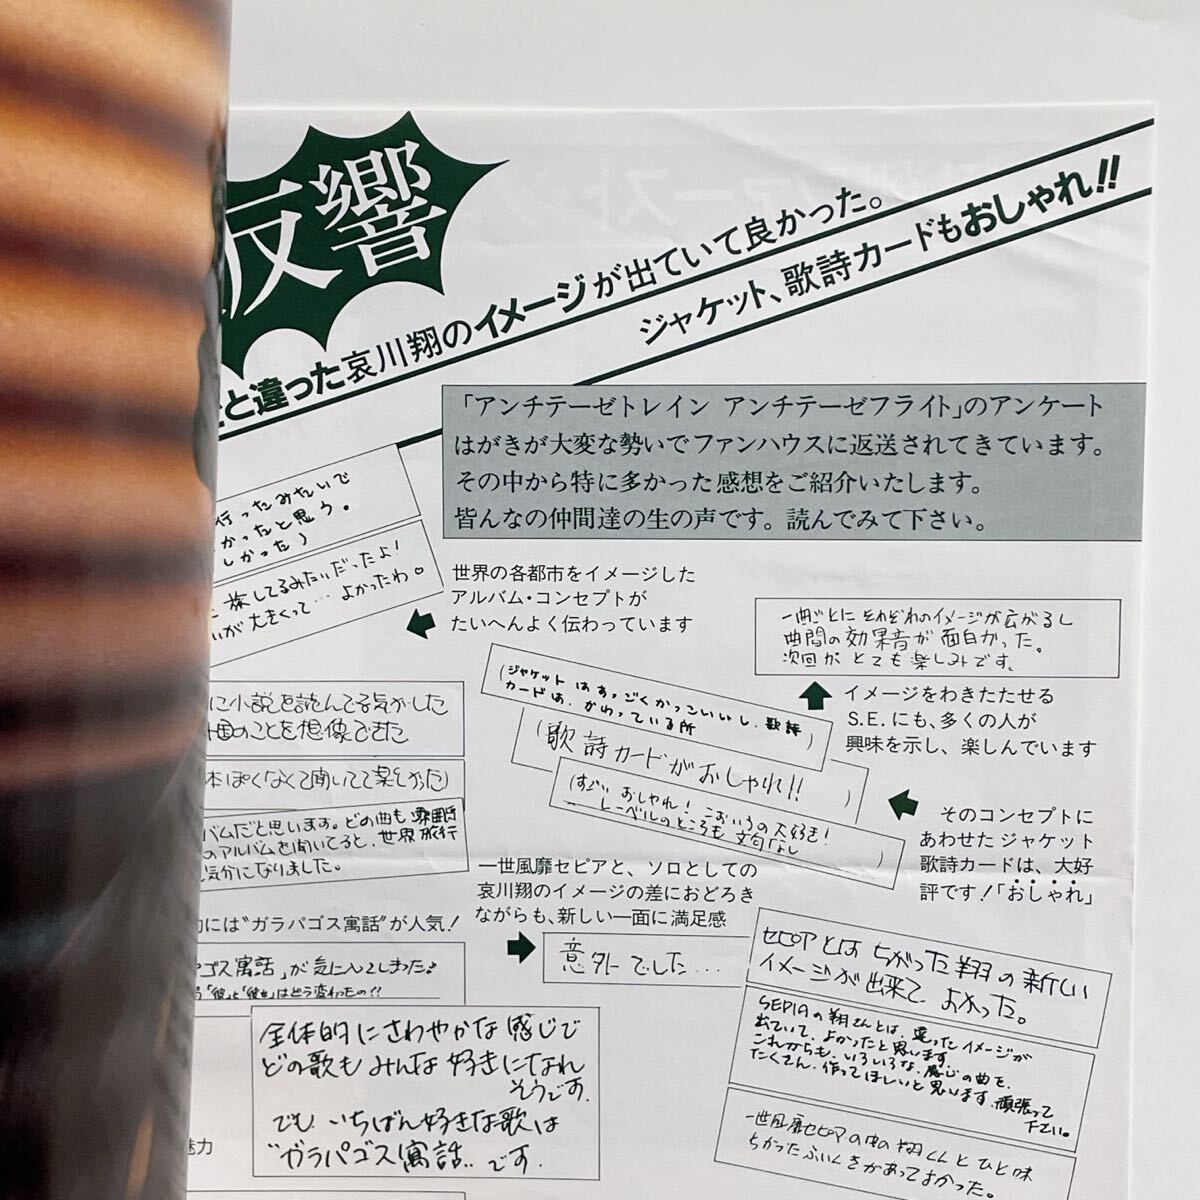 反響
と違った哀川翔のイメージが出ていて良かった。
ジャケット、歌詩カードもおしゃれ!!
「アンチテーゼトレイン アンチテーゼフライト」のアンケート
はがきが大変な勢いでファンハウスに返送されてきています。
その中から特に多かった感想をご紹介いたします。
皆んなの仲間達の生の声です。読んでみて下さい。
行ったみたいで
かったと思う。
しかった)
旅してるみたいだったよ!
が大きくって… よかったわ。
世界の各都市をイメージした
アルバム・コンセプトが
たいへんよく伝わっています
一曲ごとにそれぞれのイメージが広がるし
曲間の効果音が面白かった。
次回がとても楽しみです。
イメージをわきたたせる
S.E.にも、多くの人が
興味を示し、楽しんでいます
(ジャケットはすっごくかっこいいし、歌詩
カードは、かわっている所)
(歌詩カードがおしゃれ!!)
(すごいおしゃれ!こおいうの大好き!
レーベルのところも文句なし)
そのコンセプトに
あわせたジャケット
歌詩カードは、大好
評です!「おしゃれ」
に小説を読んでる気がした
国のことを想像できた
本ぽくなくて聞いてて楽しかった)
バムだと思います。どの曲も雰囲気
のアルバムを聞いてると、世界旅行
気分になりました。
一世風靡セピアと、ソロとしての
哀川翔のイメージの差におどろき
ながらも、新しい一面に満足感
意外でした…
には“ガラパゴス寓話”が人気!
ゴス寓話」が気に入ってしまった♪
「彼」と「彼女」はどう変わったの!!
全体的にさわやかな感じで
どの歌もみんな好きになれ
そうです。
でも、いちばん好きな歌は
“ガラパゴス寓話”です。
セピアとはちがった翔の新しい
イメージが出来て、よかった。
SEPIAの翔さんとは、違ったイメージが
出ていて、よかったと思います。
これからも、いろいろな、感じの曲を、
たくさん、作ってほしいと思います。頑張って
下さい。
一世風靡セピアの中の翔くんとひと味
ちがったふいんきがあってよかった。
魅力